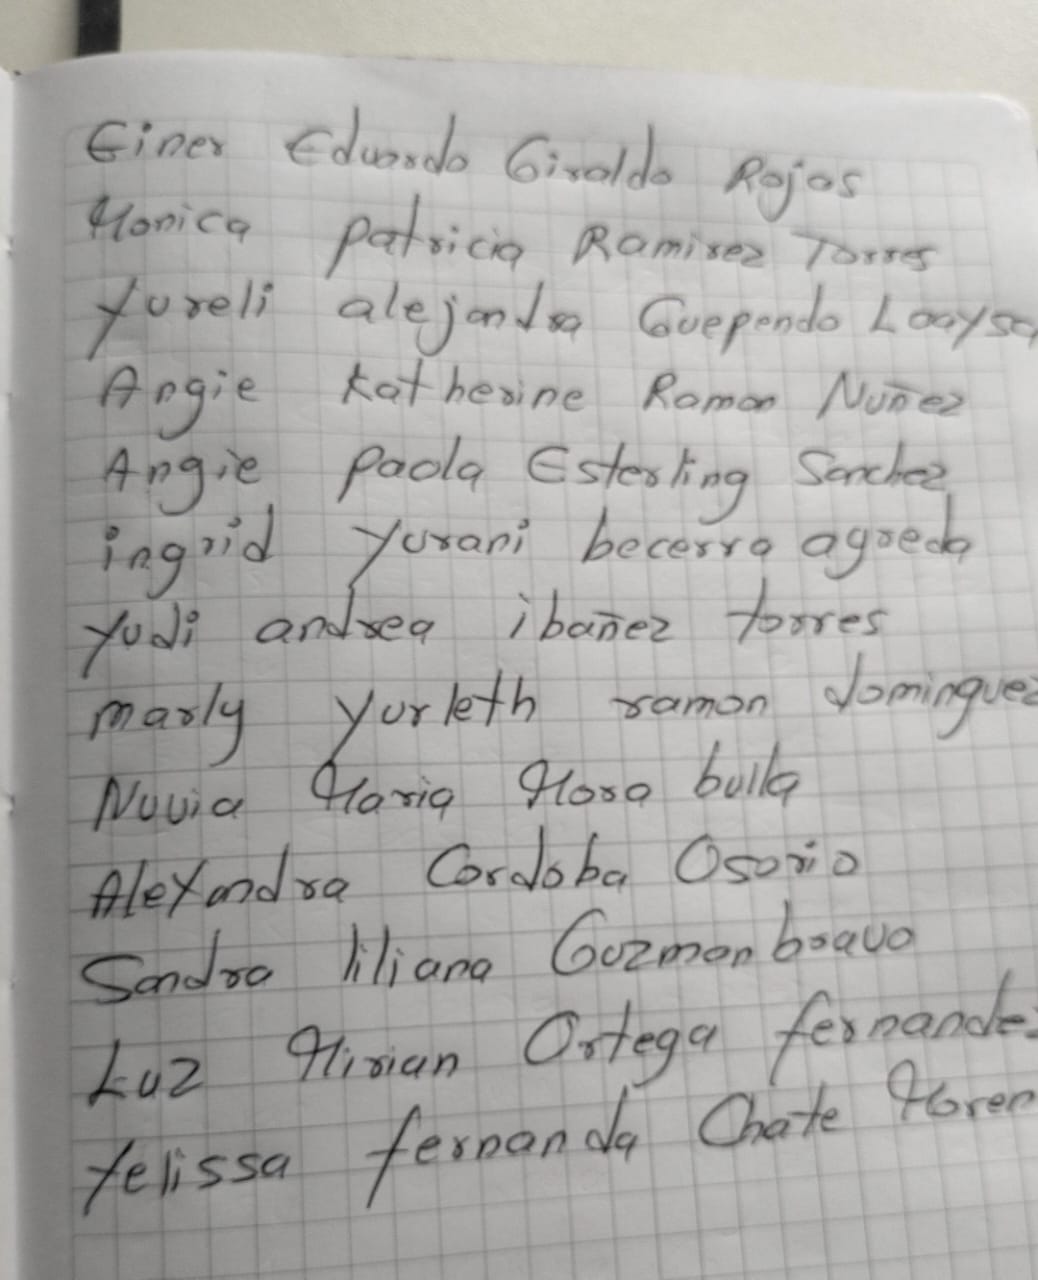 Einer Eduardo Giraldo Rojas
Monica patricia Ramirez Torres
Yureli alejandra Guependo Loaysa
Angie Katherine Ramon Nuñez
Angie paola Esterling Sanchez
ingrid yurani becerra agreda
yudi andrea ibañez torres
marly yurleth ramon dominguez
Nuvia Maria Mora bulla
Alexandra Cordoba Osorio
Sandra liliana Guzman bravo
Luz Mirian Ortega fernandez
yelissa fernanda Chate Moren